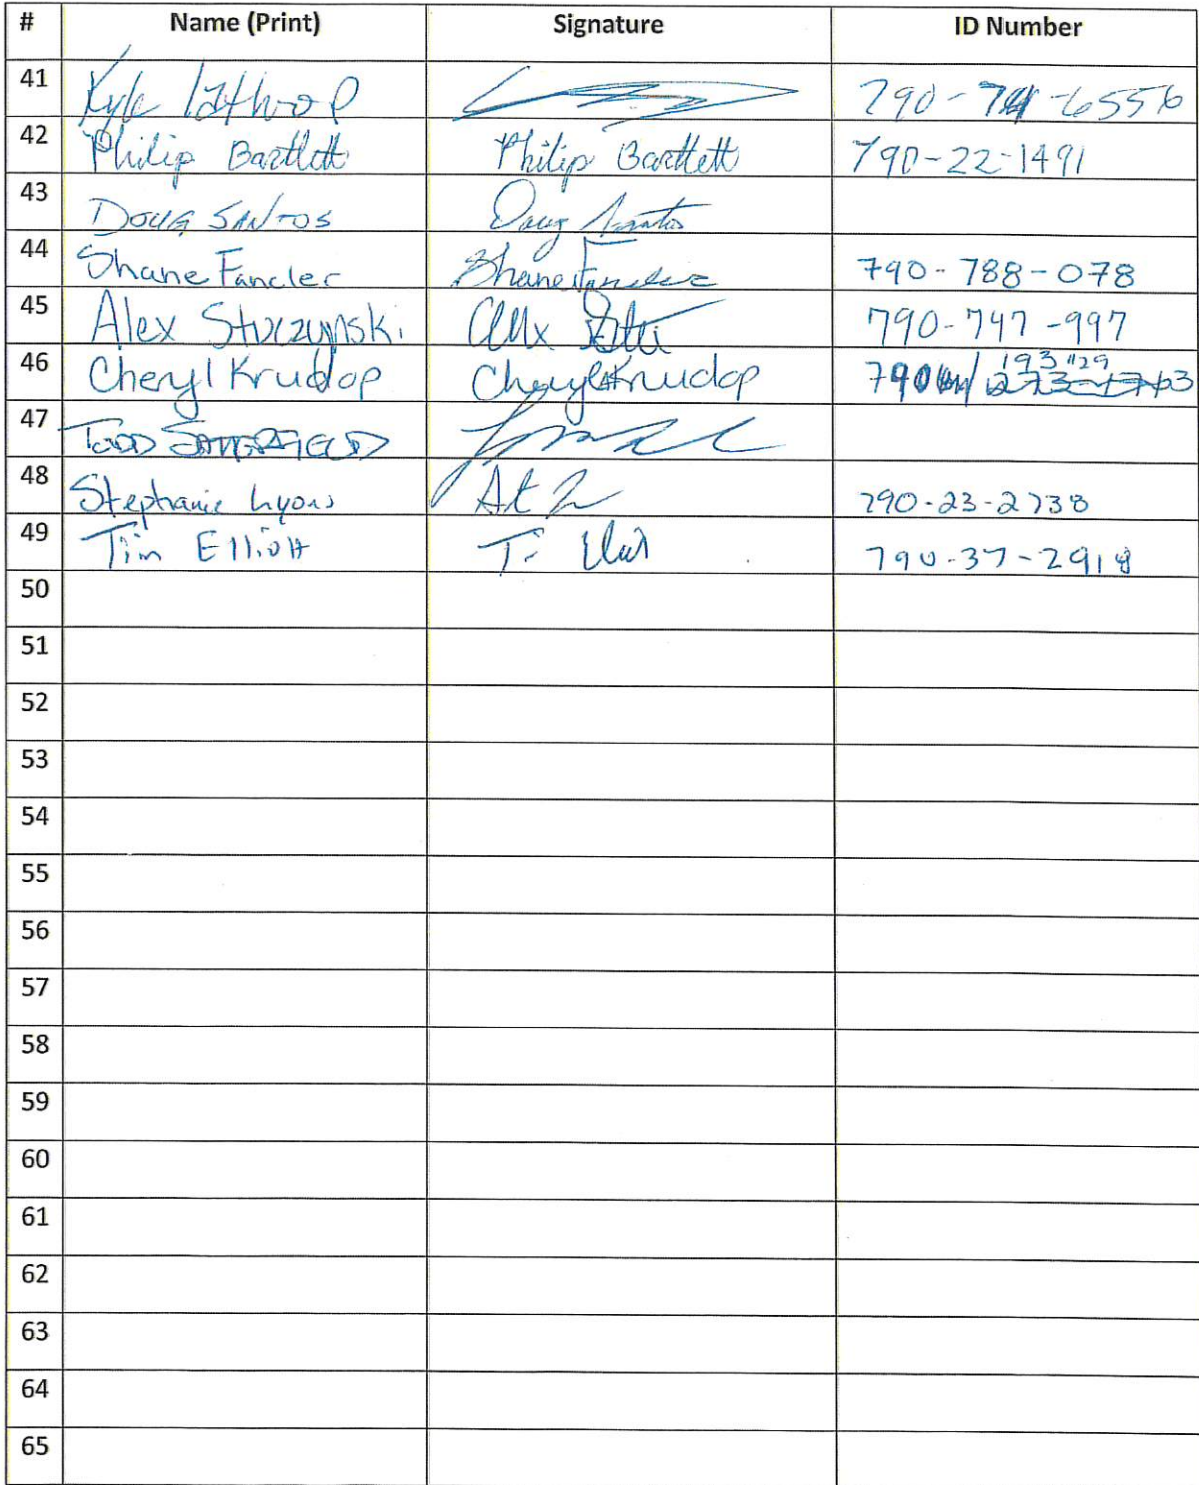 # Name (Print) Signature ID Number
41 Kyle Lathrop 790- -6556
42 Philip Bartlett Philip Bartlett 790-22-1491
43 Doug Santos Doug Santos
44 Shane Fancler Shane Fancler 790-788-078
45 Alex Stuczynski Alex 790-747-997
46 Cheryl Krudop Cheryl Krudop 790 193 1129
47 Todd
48 Stephanie Lyons 790-23-2738
49 Tim Elliott 790-37-2918
50
51
52
53
54
55
56
57
58
59
60
61
62
63
64
65